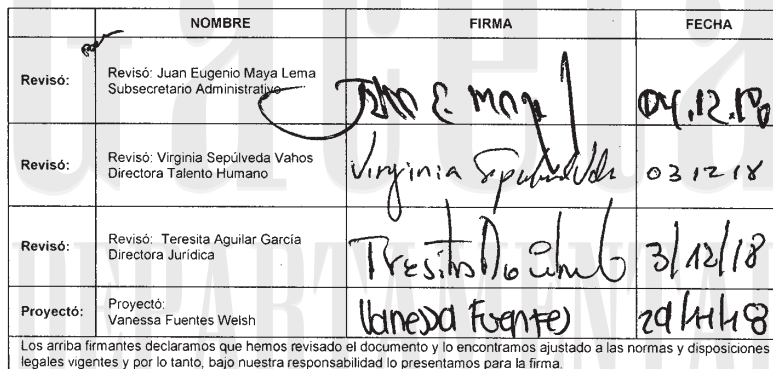 NOMBRE FIRMA FECHA
Revisó: Revisó: Juan Eugenio Maya Lema
Subsecretario Administrativo
04.12.18
Revisó: Revisó: Virginia Sepúlveda Vahos Virginia Sepúlveda 03 12 18
Directora Talento Humano
Revisó: Revisó: Teresita Aguilar García Teresita 3/12/18
Directora Jurídica
Proyectó: Proyectó:
Vanessa Fuentes Welsh Vanessa Fuentes 29/11/18
Los arriba firmantes declaramos que hemos revisado el documento y lo encontramos ajustado a las normas y disposiciones
legales vigentes y por lo tanto, bajo nuestra responsabilidad lo presentamos para la firma.